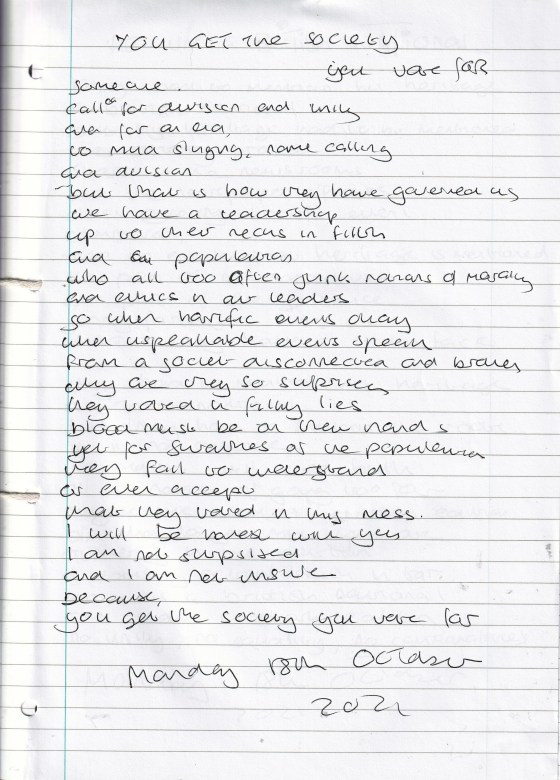 YOU GET THE SOCIETY
you vote for
Someone.
Call for division and unity
and for an end,
to mud slinging, name calling
and division
but that is how they have governed us
we have a leadership
up to their necks in filth
and population
who all too often junk notions of morality
and ethics in our leaders
so when horrific events
when unspeakable events speak
from a society disconnected and broken
why are they so surprised
they voted in filthy lies
blood must be on their hands
yet for swathes of the population
they fail to understand
or even accept
that they voted in this mess.
I will be honest with you
I am not surprised
and I am not
because,
you get the society you vote for
Monday 18th October
2021